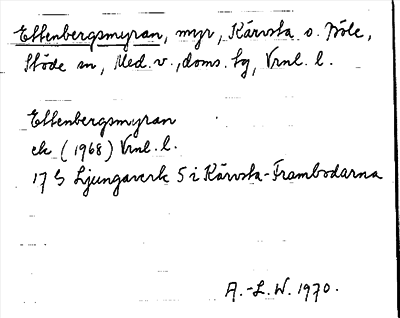 Ettenbergsmyran, myr, Kärvsta o. Nöle,
Stöde sn, Med. v., doms. tg, Vrnl. l.
Ettenbergsmyran
ek (1968) Vrnl. l.
17 G Ljungaverk S i Kärvsta-Frambodarna
A.-L.W. 1970.